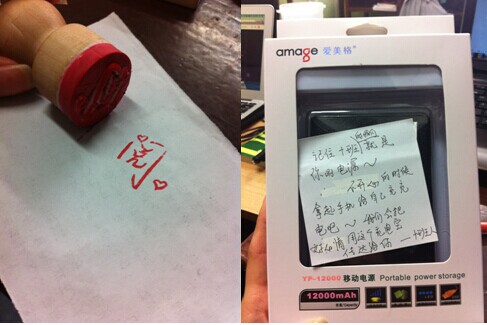 amage 爱美格®
记住十班就是
你的电源~
不开心的时候
拿起手机给自己充充
电吧~ 我们会把
好心情用这个充电宝
传送给你
YP-12000 移动电源 Portable power storage
12000mAh